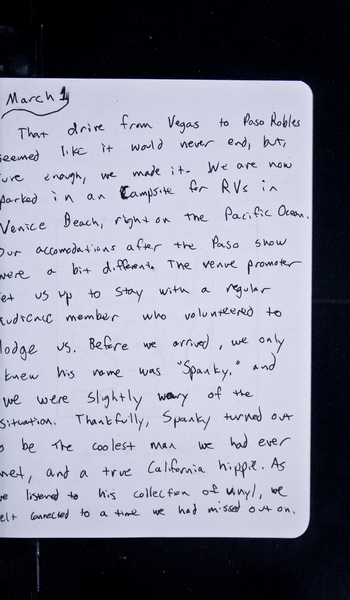 March 1
That drive from Vegas to Paso Robles
seemed like it would never end, but,
sure enough, we made it. We are now
parked in an Campsite for RVs in
Venice Beach, right on the Pacific Ocean.
Our accomodations after the Paso show
were a bit different. The venue promoter
et us up to stay with a regular
audience member who volunteered to
lodge us. Before we arrived, we only
knew his name was "Spanky," and
we were slightly wary of the
situation. Thankfully, Spanky turned out
o be the coolest man we had ever
met, and a true California hippie. As
we listened to his collection of vinyl, we
elt connected to a time we had missed out on.